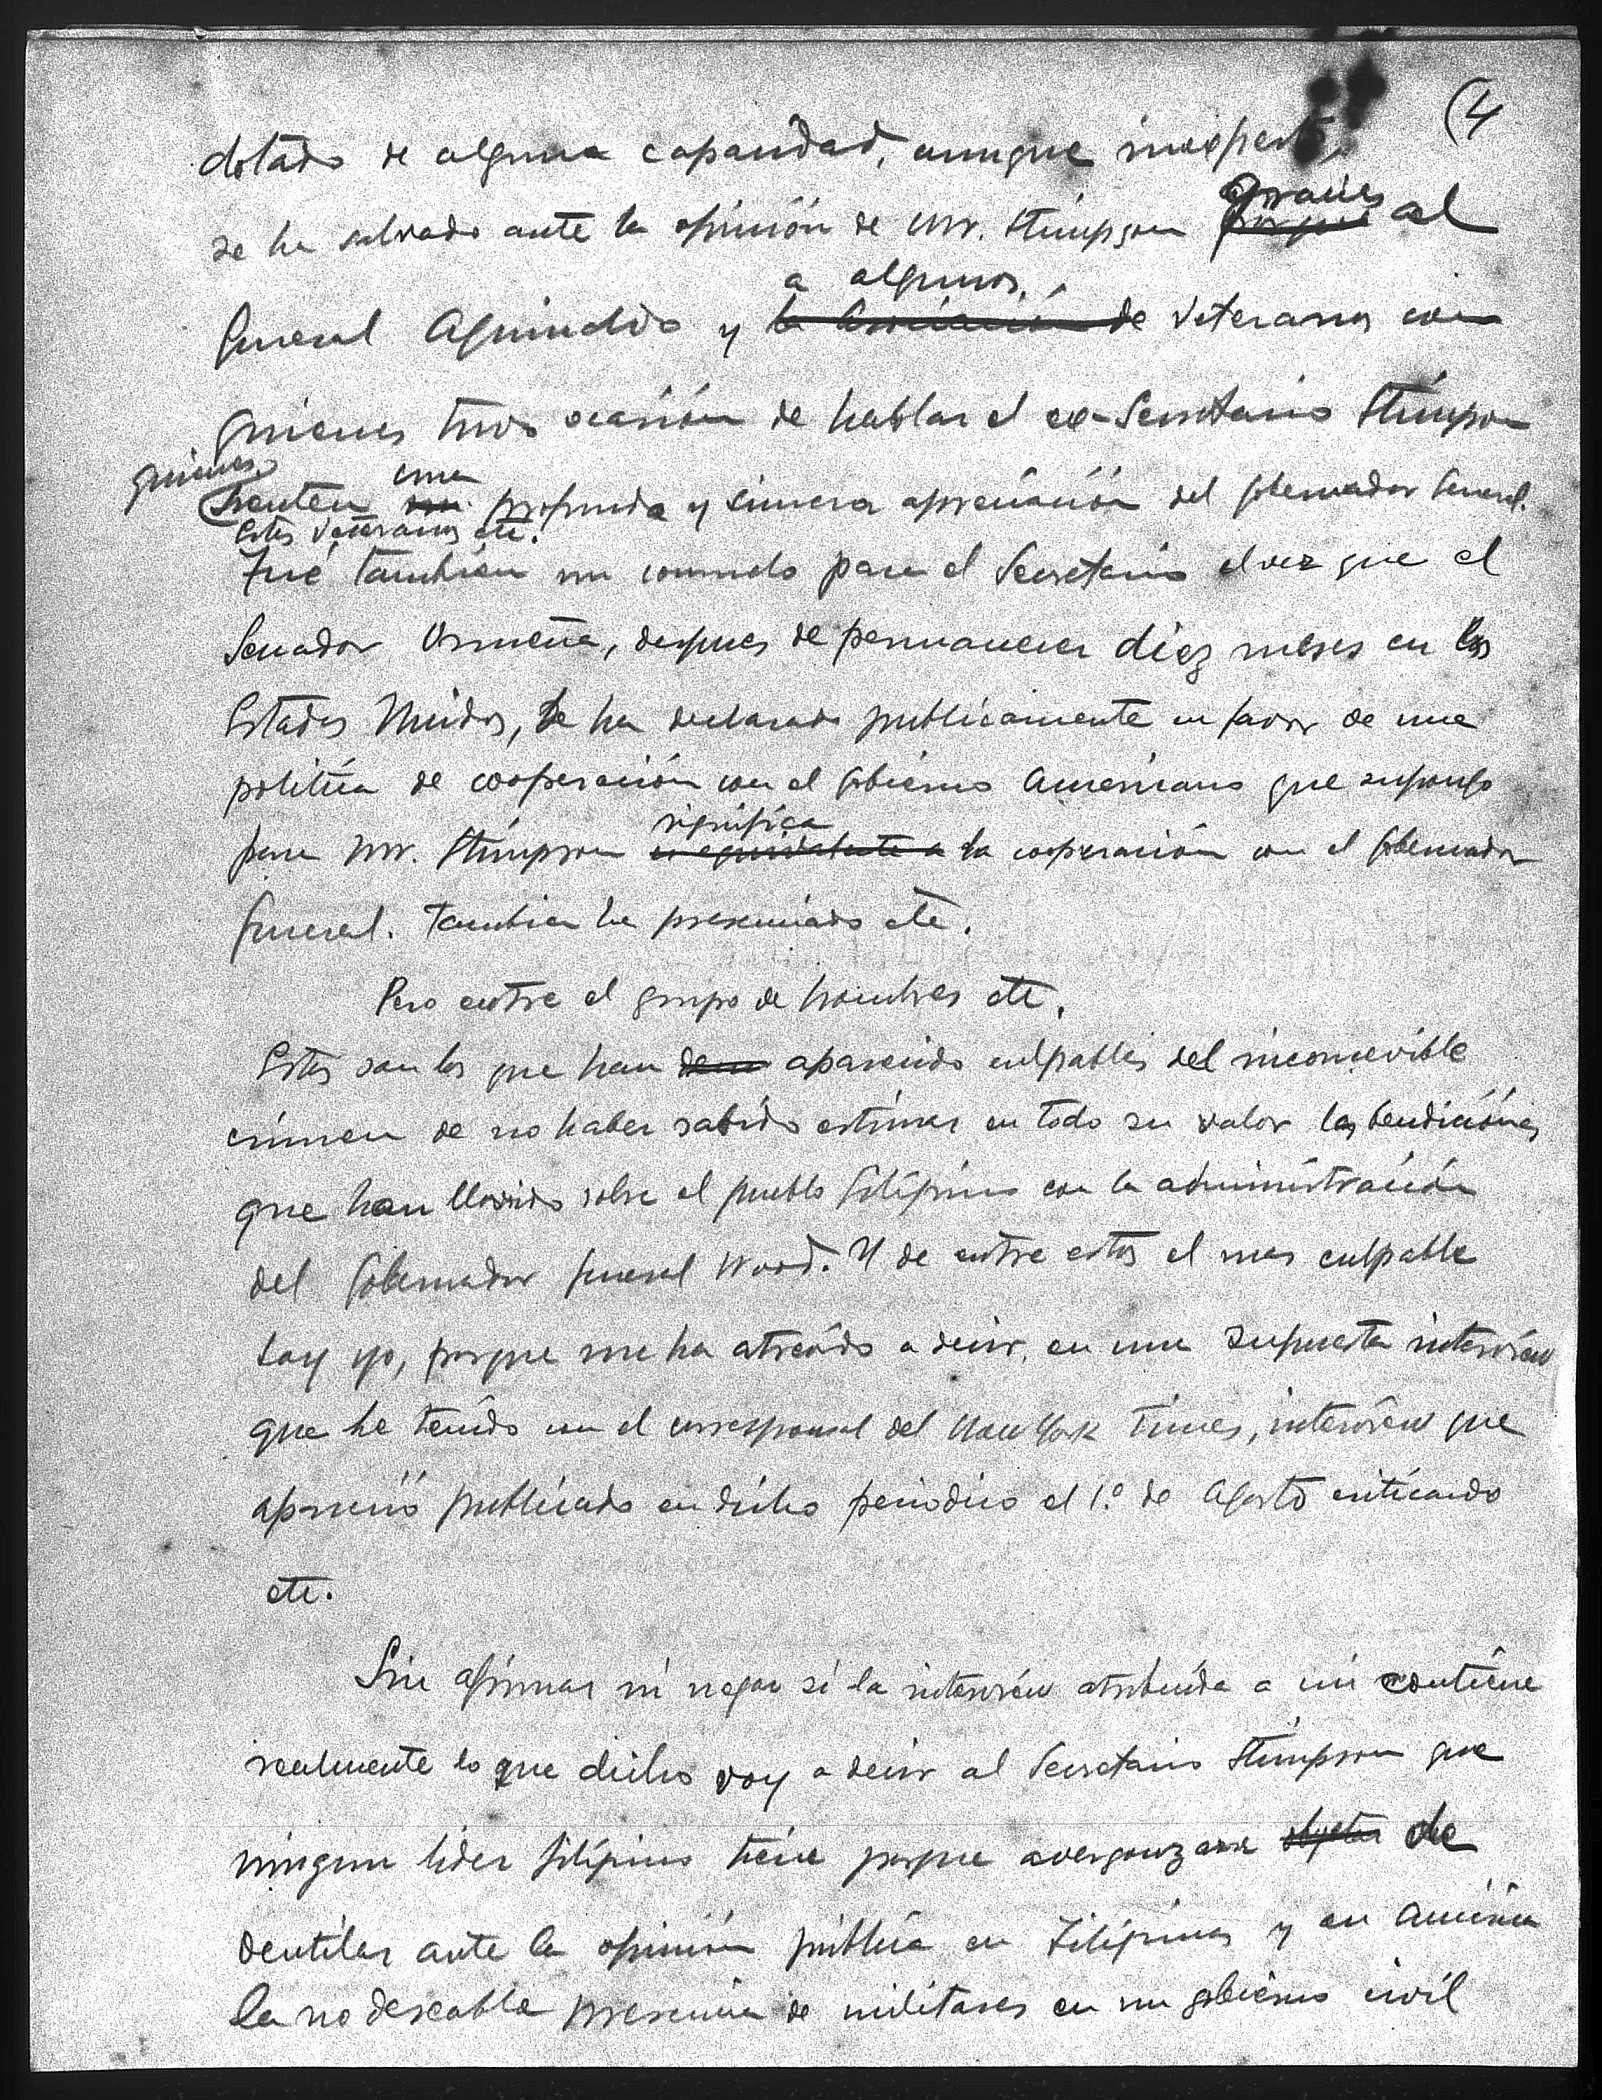 (4
dotado de alguna capacidad, aunque inexperto,
gracias
se ha salvado ante la opinión de Mr. Stimpson porque al
a algunos
General Aguinaldo y la Asociación de Veteranos con
quienes tuvo ocasión de hablar el ex-Secretario Stimpson
quienes una
sienten una profunda y sincera apreciación del Gobernador General.
Estos Veteranos etc.
Fué también un consuelo para el Secretario el ver que el
Senador Osmeña, despues de permanecer diez meses en los
Estados Unidos, se ha declarado publicamente en favor de una
politica de cooperación con el Gobierno Americano que supongo
significa
para Mr. Stimpson es equivalente a la cooperación con el Gobernador
General. Tambien ha presenciado etc.
Pero entre el grupo de hombres etc.
Estos son los que han aparecido culpables del inconcevible
crimen de no haber sabido estimar en todo su valor las bendiciónes
que han llovido sobre el pueblo filipino con la administración
del Gobernador General Wood. Y de entre estos el mas culpable
soy yo, porque me ha atrevido a decir, en una supuesta interview
que he tenido con el corresponsal del New York Times, interview que
apareció publicado en dicho periodico el 1.º de Agosto criticando
etc.
Sin afirmar ni negar si la interview atribuida a mi contiene
realmente lo que dicho voy a decir al Secretario Stimpson que
ningun lider filipino tiene porque avergonzarse objetar de
ventilar ante la opinión pública en Filipinas y en America
la no deseable presencia de militares en un gobierno civil